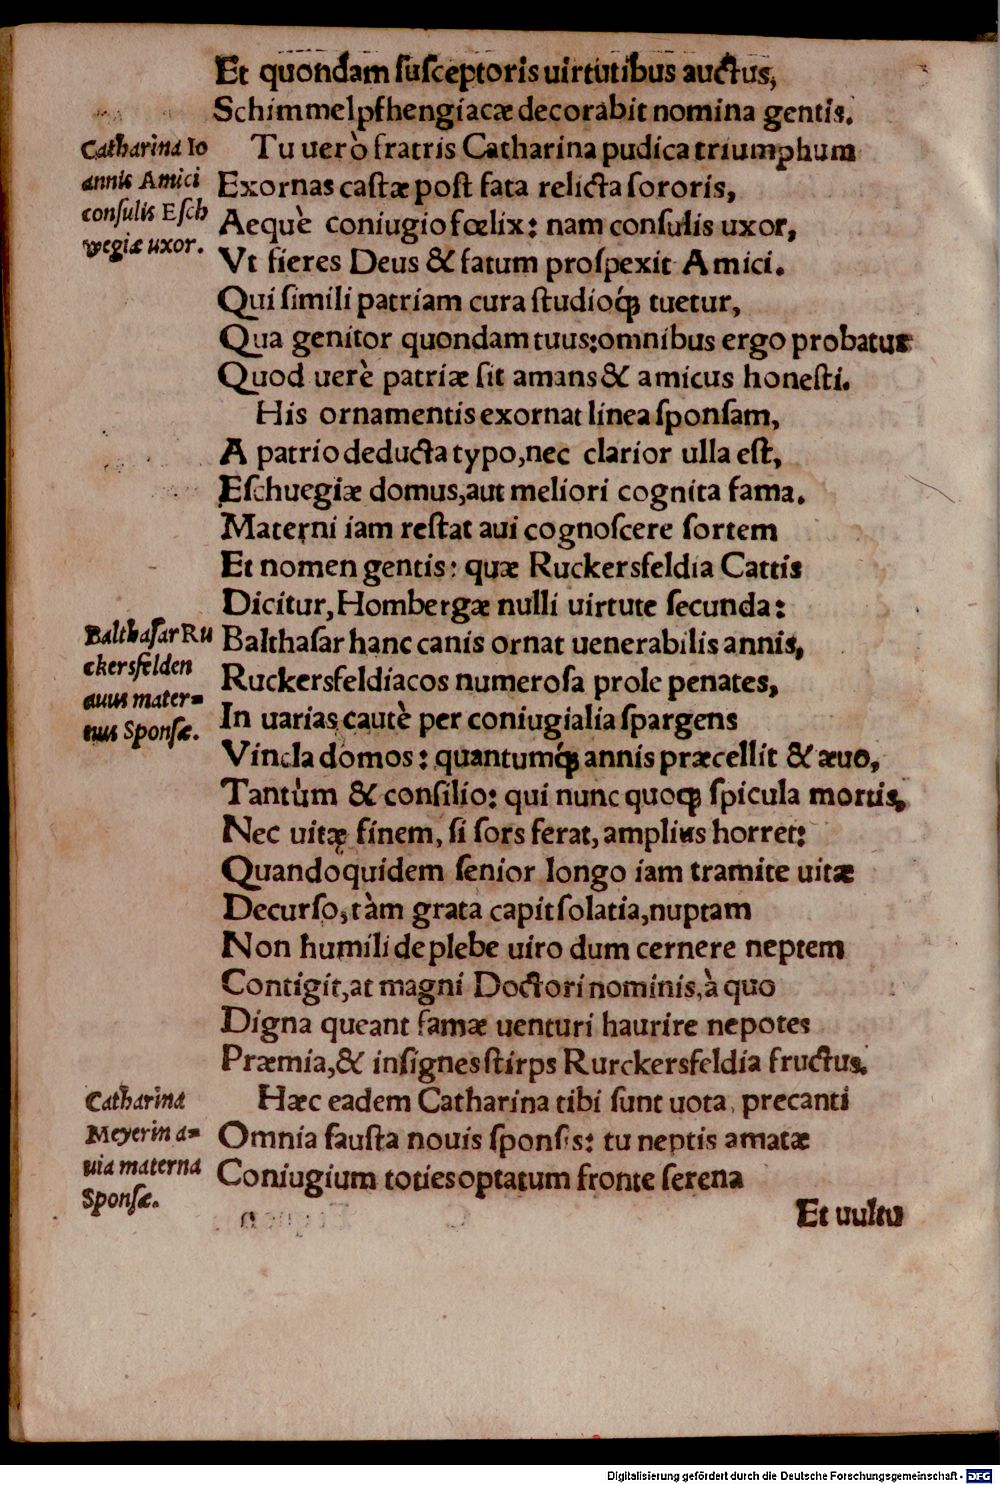 Et quondam ſuſceptoris uirtutibus auctus,
Schimmelpfhengiacæ decorabit nomina gentis.
Catharina Io
annis Amici
conſulis Eſch
wegiæ uxor.
Tu uerò fratris Catharina pudica triumphum
Exornas caſtæ poſt fata relicta ſororis,
Aequè coniugio fœlix: nam conſulis uxor,
Vt fieres Deus & fatum proſpexit Amici.
Qui ſimili patriam cura ſtudioq́ꝫ tuetur,
Qua genitor quondam tuus: omnibus ergo probatur
Quod uerè patriæ ſit amans & amicus honeſti.
His ornamentis exornat linea ſponſam,
A patrio deducta typo, nec clarior ulla eſt,
Eſchuegiæ domus, aut meliori cognita fama.
Materni iam reſtat aui cognoſcere ſortem
Et nomen gentis: quæ Ruckersfeldia Cattis
Dicitur, Hombergæ nulli uirtute ſecunda:
Balthaſar Ru
ckersfelden
auus mater=
nus Sponſæ.
Balthaſar hanc canis ornat uenerabilis annis,
Ruckersfeldiacos numeroſa prole penates,
In uarias cautè per coniugialia ſpargens
Vincla domos: quantumq́ꝫ annis præcellit & æuo,
Tantùm & conſilio: qui nunc quoqꝫ ſpicula mortis,
Nec uitę finem, ſi ſors ferat, amplius horret:
Quandoquidem ſenior longo iam tramite uitæ
Decurſo, tàm grata capit ſolatia, nuptam
Non humili de plebe uiro dum cernere neptem
Contigit, at magni Doctori nominis, à quo
Digna queant famæ uenturi haurire nepotes
Præmia, & inſignes ſtirps Rurckersfeldia fructus.
Catharina
Meyerin a=
uia materna
Sponſæ.
Hæc eadem Catharina tibi ſunt uota, precanti
Omnia fauſta nouis ſponſis: tu neptis amatæ
Coniugium toties optatum fronte ſerena
Et uultu
Digitalisierung gefördert durch die Deutsche Forschungsgemeinschaft - DFG